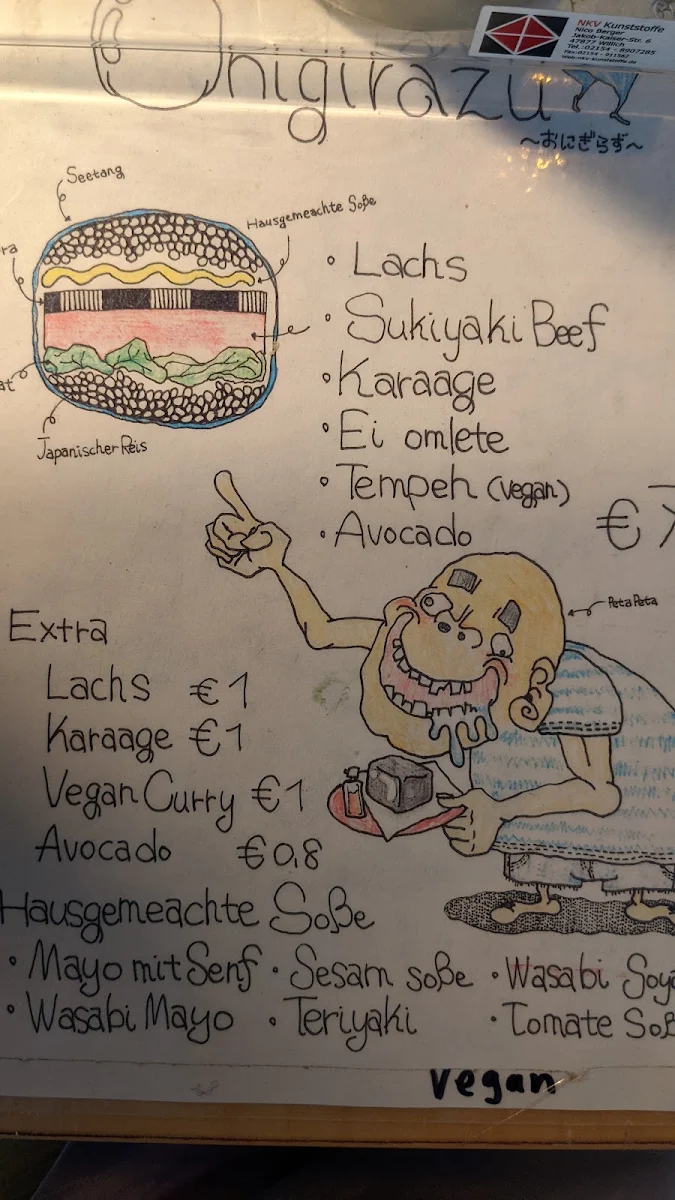 Onigirazu
～おにぎらず～
NKV Kunststoffe
Nico Berger
Jakob-Kaiser-Str. 6
47877 Willich
Tel.:02154 - 8907285
Fax:02154 - 911582
Web:nkv-kunststoffe.de
Seetang
Hausgemeachte Soße
ra
at
Japanischer Reis
• Lachs
• Sukiyaki Beef
• Karaage
• Ei omlete
• Tempeh (vegan)
• Avocado
€ 7
Peta Peta
Extra
Lachs €1
Karaage €1
Vegan Curry €1
Avocado €0,8
Hausgemeachte Soße
• Mayo mit Senf • Sesam soße • Wasabi Soya
• Wasabi Mayo • Teriyaki • Tomate Soß
vegan